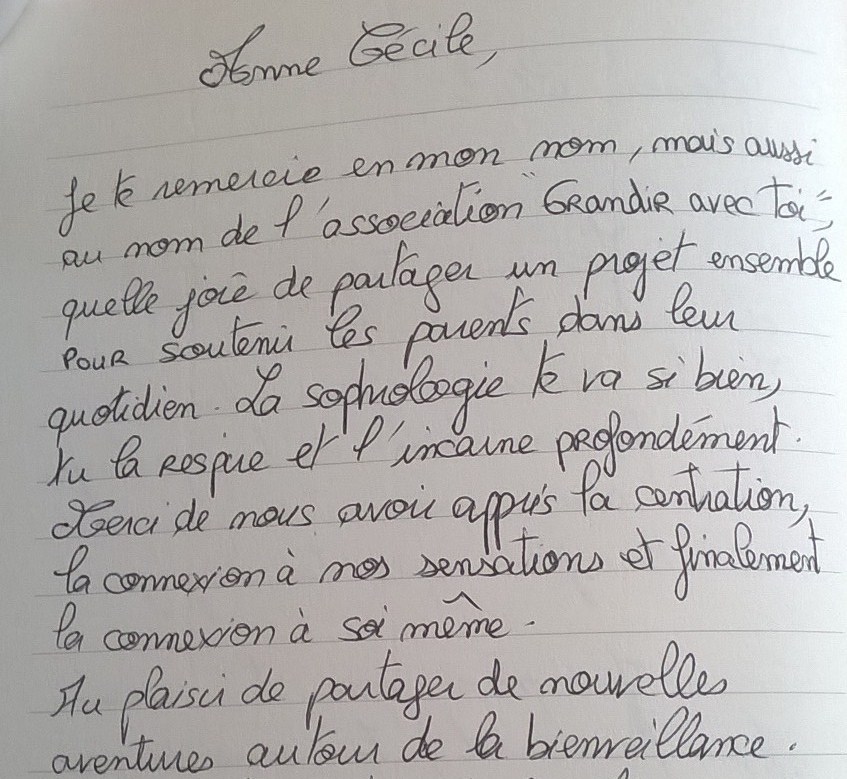 Anne Cécile,
Je te remercie en mon nom, mais aussi
au nom de l'association "Grandir avec Toi",
quelle joie de partager un projet ensemble
pour soutenir les parents dans leur
quotidien. La sophrologie te va si bien,
tu la respire et l'incarne profondément.
Merci de nous avoir appris la centration,
la connexion à nos sensations et finalement
la connexion à soi même.
Au plaisir de partager de nouvelles
aventures autour de la bienveillance.